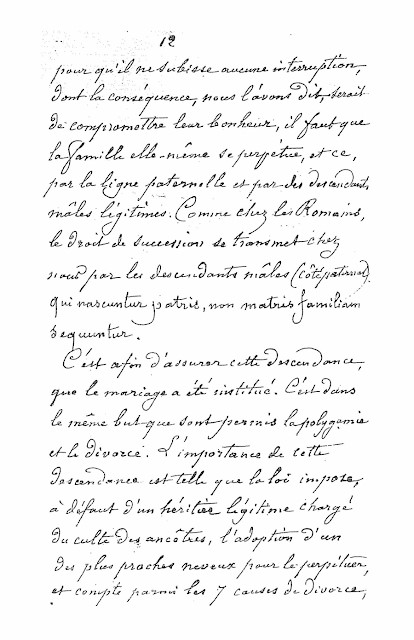 12
pour qu'il ne subisse aucune interruption,
dont la conséquence, nous l'avons dit, serait
de compromettre leur bonheur, il faut que
la famille elle-même se perpétue, et ce,
par la ligne paternelle et par des descendants
mâles légitimes. Comme chez les Romains,
le droit de succession se transmet chez
nous par les descendants mâles (côté paternel).
qui nascuntur patris, non matris familiam
sequuntur.
C'est afin d'assurer cette descendance,
que le mariage a été institué. C'est dans
le même but que sont permis la polygamie
et le divorce. L'importance de cette
descendance est telle que la loi impose,
à défaut d'un héritier légitime chargé
du culte des ancêtres, l'adoption d'un
des plus proches neveux pour le perpétuer,
et compte parmi les 7 causes de divorce,